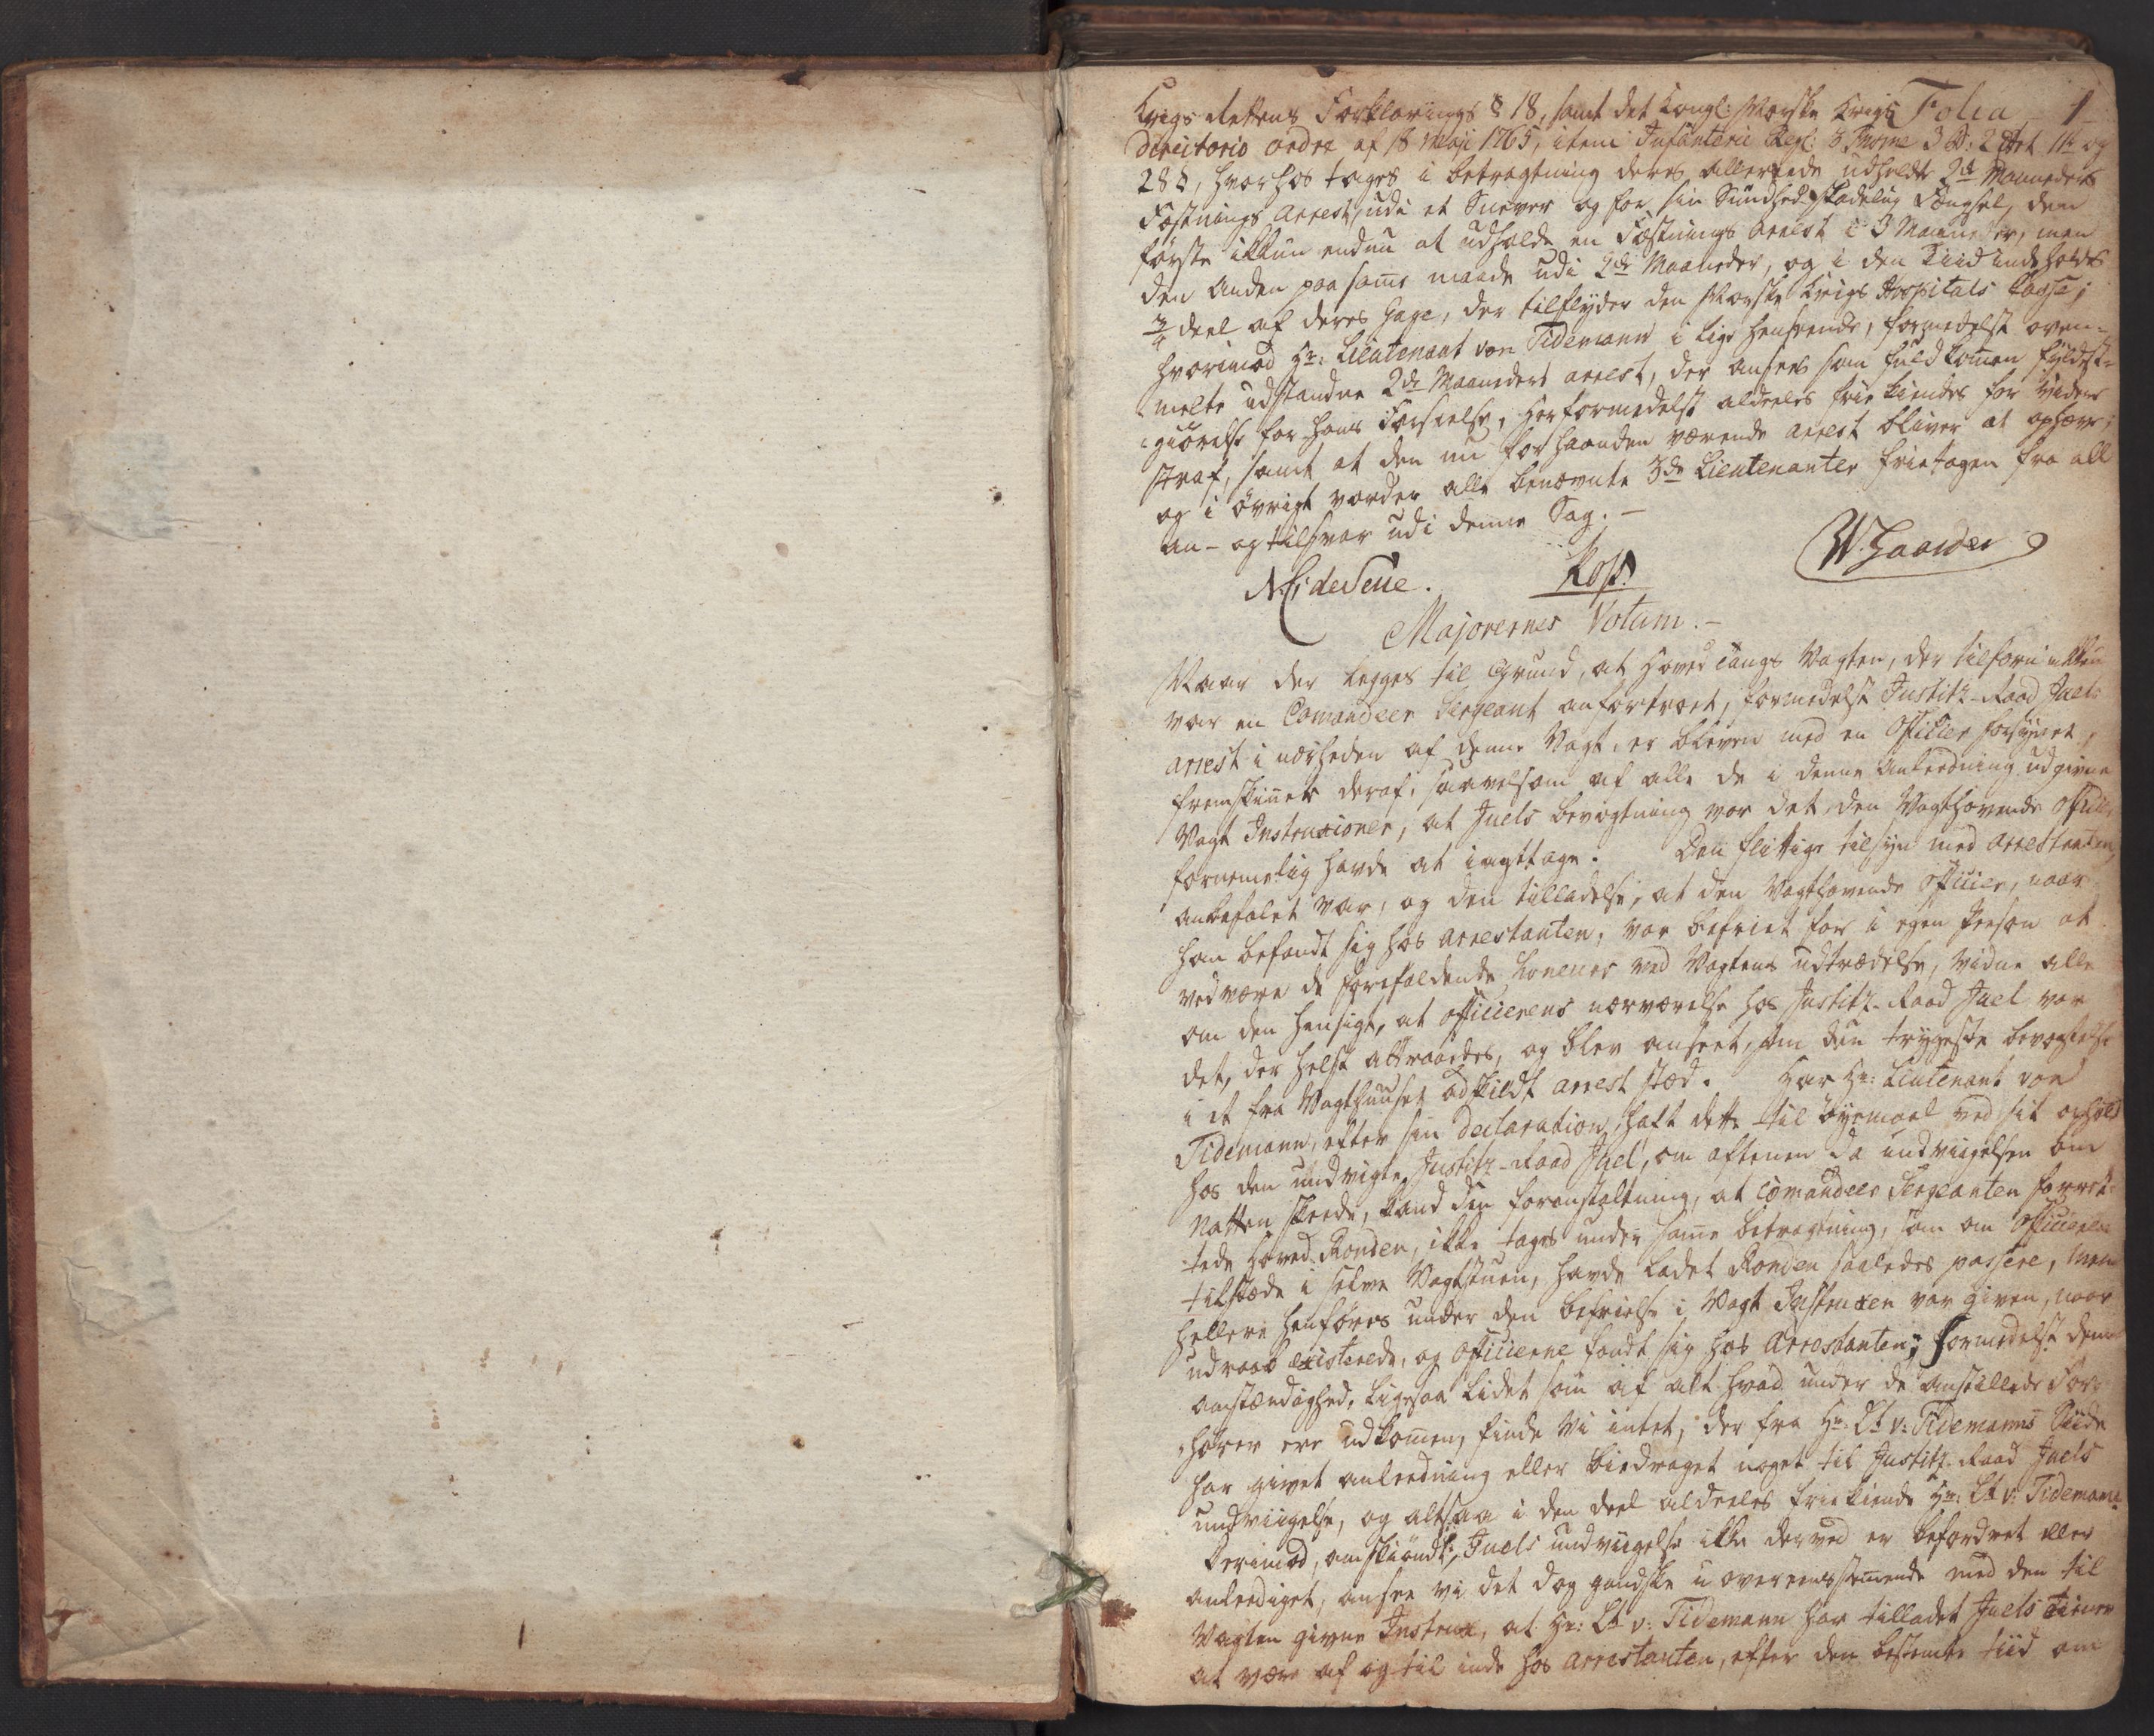 Krigs Rettens Forklarings § 18, samt det Kongl: Norske Krigs Folia 1
Directorio ordre af 18 Maji 1765, item Infanterie Regl: 3 Tome 3 B: 2 Art 11te og
28 §, hvorhos tages i betragtning deres allerede udholdte 2de Maaneders
Fæstnings Arrest, udi et Snever og for sin Sundhed skadelig Fængsel, den
første ikkun endnu at udholde en Fæstnings Arrest i 3 Maaneder, men
den Anden paa samme maade udi 2de Maaneder, og i den Tiid indeholdes
deel af deres Gage, der tilflyder den Norske Krigs Hospitals Casse;
hvorimod Hr: Lieutenant von Tidemann i lige henseende, formedelst oven-
melte udstandne 2de Maaneders arrest, der ansees som fuldkommen fyldest-
giørelse for hans Forseelse, herformedelst aldeeles frie kiendes for videre
straf, samt at den nu forhaanden værende arrest bliver at ophæve;
og i øvrigt vorder alle benævnte 3de Lieutenanter frietagen fra all
an- og tilsvar udi denne Sag. -
N: de Seue. Kos: W. Gaarder
Majorernes Votum. -
Naar der legges til Grund, at Hoved Tangs Vagten, der tilforn ikkun
var en Comandeer Sergeant anfortroet, formedelst Justitz-Raad Juels
arrest i nærheden af denne Vagt, er bleven med en Officier forsynet,
fremskinner deraf, saavelsom af alle de i denne Anleedning udgivne
Vagt Instruxioner, at Juels bevogtning var det, den Vagthavende Officier
fornemelig havde at iagttage. Den flittige tilsyn med Arrestanten,
anbefalet var, og den tilladelse, at den Vagthavende Officier, naar
han befandt sig hos Arrestanten, var befriet for i egen Person at
ved være de forefaldende honeurs ved Vagtens udtrædelse, vidne alle
om den hensigt, at Officierens nærværelse hos Justitz-Raad Juel var
det, der helst attraaedes, og blev anseet, som den trygeste bevogtelse
i et fra Vagthuuset adskildt arrest stæd. Har Hr: Lieutenant von
Tidemann, efter sin Declaration, haft dette til øyemaal ved sit ophold
hos den undvigte Justitz-Raad Juel, om aftenen da undviigelsen om
Natten skeede, kand den foranstaltning, at Comandeer Sergeanten forret-
tede Hoved Ronden, ikke tages under samme betragtning, som om Officieren
tilstæde i selve Vagtstuen, havde ladet Ronden saaledes passere, men
hellere henføres under den befrielse i Vagt Instruxen var given, naar
udraab existerede, og Officierne fandt sig hos Arrestanten; formedelst denne
omstændighed, ligesaa lidet som af alt hvad under de anstillede For-
hører ere udkomen, finde Vi intet, der fra Hr: Lt v: Tidemanns Siide
har givet anleedning eller biedraget noget til Justitz-Raad Juels
undviigelse, og altsaa i den deel aldeeles friekiende Hr: Lt v: Tidemann.
Derimod, omskiøndt Juels undviigelse ikke derved er befordret eller
anleediget, ansee vi det dog gandske u overeensstemende med den til
Vagten givne Instrux, at Hr: Lt v: Tidemann har tilladet Juels Tiener
at være af og til inde hos Arrestanten, efter den bestemte tiid om